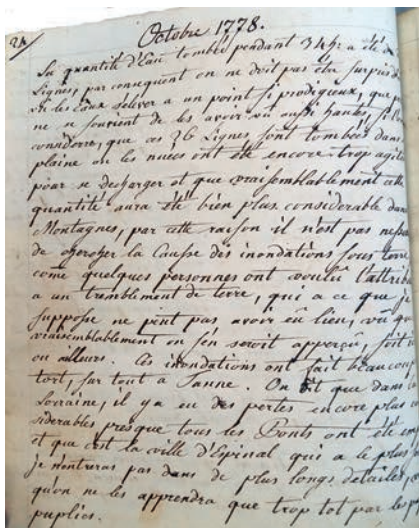 24/
Octobre 1778.
La quantité d'Eau tombée pendant 34 h: a été de
Lignes, par consequent on ne doit pas être surpris de
voir les Eaux s'elever a un point si prodigieux, que
ne se souvient de les avoir vû aussi hautes, si l'on
considere, que ces 26 Lignes sont tombées dans
plaine ou les nuées ont été encore trop agitées
pour se decharger et que vraisemblablement cette
quantité aura été bien plus considerable dans
Montagnes, par cette raison il n'est pas
de chercher la Causse des inondations sous terre
come quelques personnes ont voulû l'attrib
a un tremblement de terre, qui a ce que je
suppose ne peut pas avoir eu lieu, vû que
vraisemblablement on s'en seroit apperçu, soit i
ou ailleurs. Ces inondations ont fait beaucoup
tort, sur tout a Tanne. On dit que dans
Lorraine, il y a eu des pertes encore plus
siderables, presque tous les Ponts ont été
et que c'est la ville d'Epinal qui a le plus
je n'entreras pas dans de plus longs detailes,
qu'on ne les apprendra que trop tot par les
puplics.